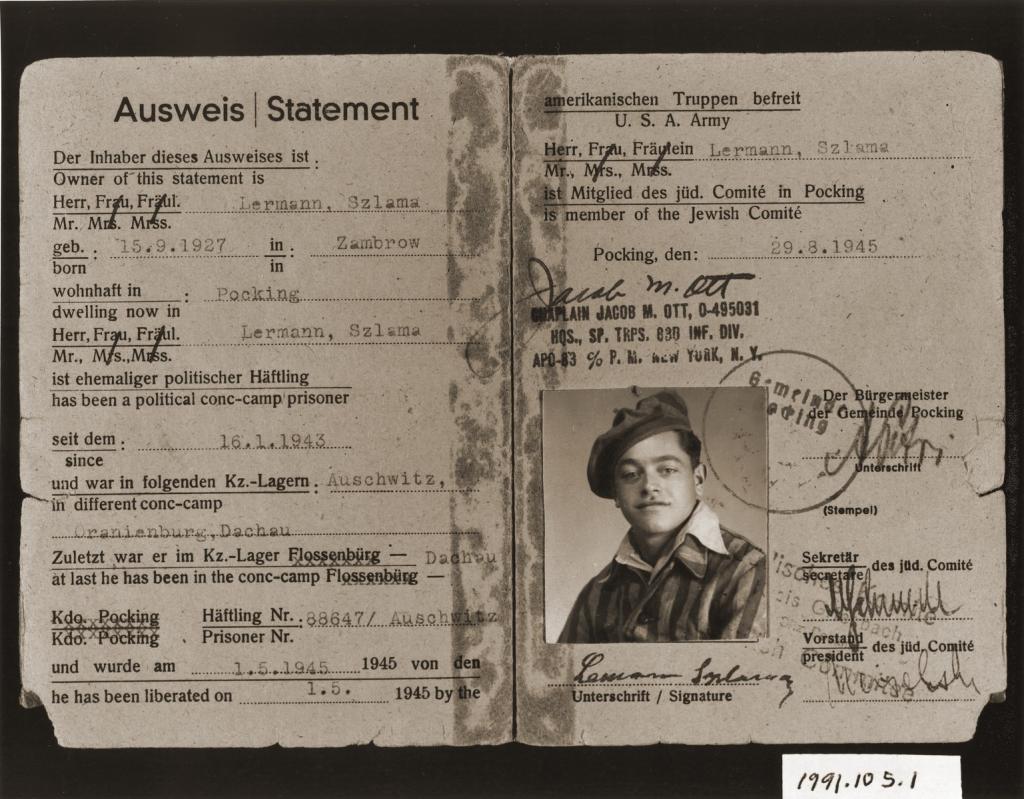 Ausweis | Statement
Der Inhaber dieses Ausweises ist :
Owner of this statement is
Herr, Frau, Fräul. Lermann, Szlama
Mr. Mrs. Mrss.
geb. : 15.9.1927 in : Zambrow
born in
wohnhaft in : Pocking
dwelling now in
Herr, Frau, Fräul. Lermann, Szlama
Mr., Mrs., Mrss.
ist ehemaliger politischer Häftling
has been a political conc-camp prisoner
seit dem : 16.1.1943
since
und war in folgenden Kz.-Lagern : Auschwitz,
in different conc-camp
Oranienburg, Dachau
Zuletzt war er im Kz.-Lager Flossenbürg — Dachau
at last he has been in the conc-camp Flossenbürg —
Kdo. Pocking Häftling Nr. : 88647/ Auschwitz
Kdo. Pocking Prisoner Nr.
und wurde am 1.5.1945 1945 von den
he has been liberated on 1.5. 1945 by the
amerikanischen Truppen befreit
U. S. A. Army
Herr, Frau, Fräulein Lermann, Szlama
Mr., Mrs., Mrss.
ist Mitglied des jüd. Comité in Pocking
is member of the Jewish Comité
Pocking, den: 29.8.1945
Jacob M. Ott
CHAPLAIN JACOB M. OTT, O-495031
HQS., SP. TRPS. 83D INF. DIV.
APO-83 c/o P. M. NEW YORK, N. Y.
Gemeinde
Pocking
Der Bürgermeister
der Gemeinde Pocking
Unterschrift
(Stempel)
Sekretär
secretare des jüd. Comité
Vorstand
president des jüd. Comité
Lerman Szlama
Unterschrift / Signature
1991.105.1